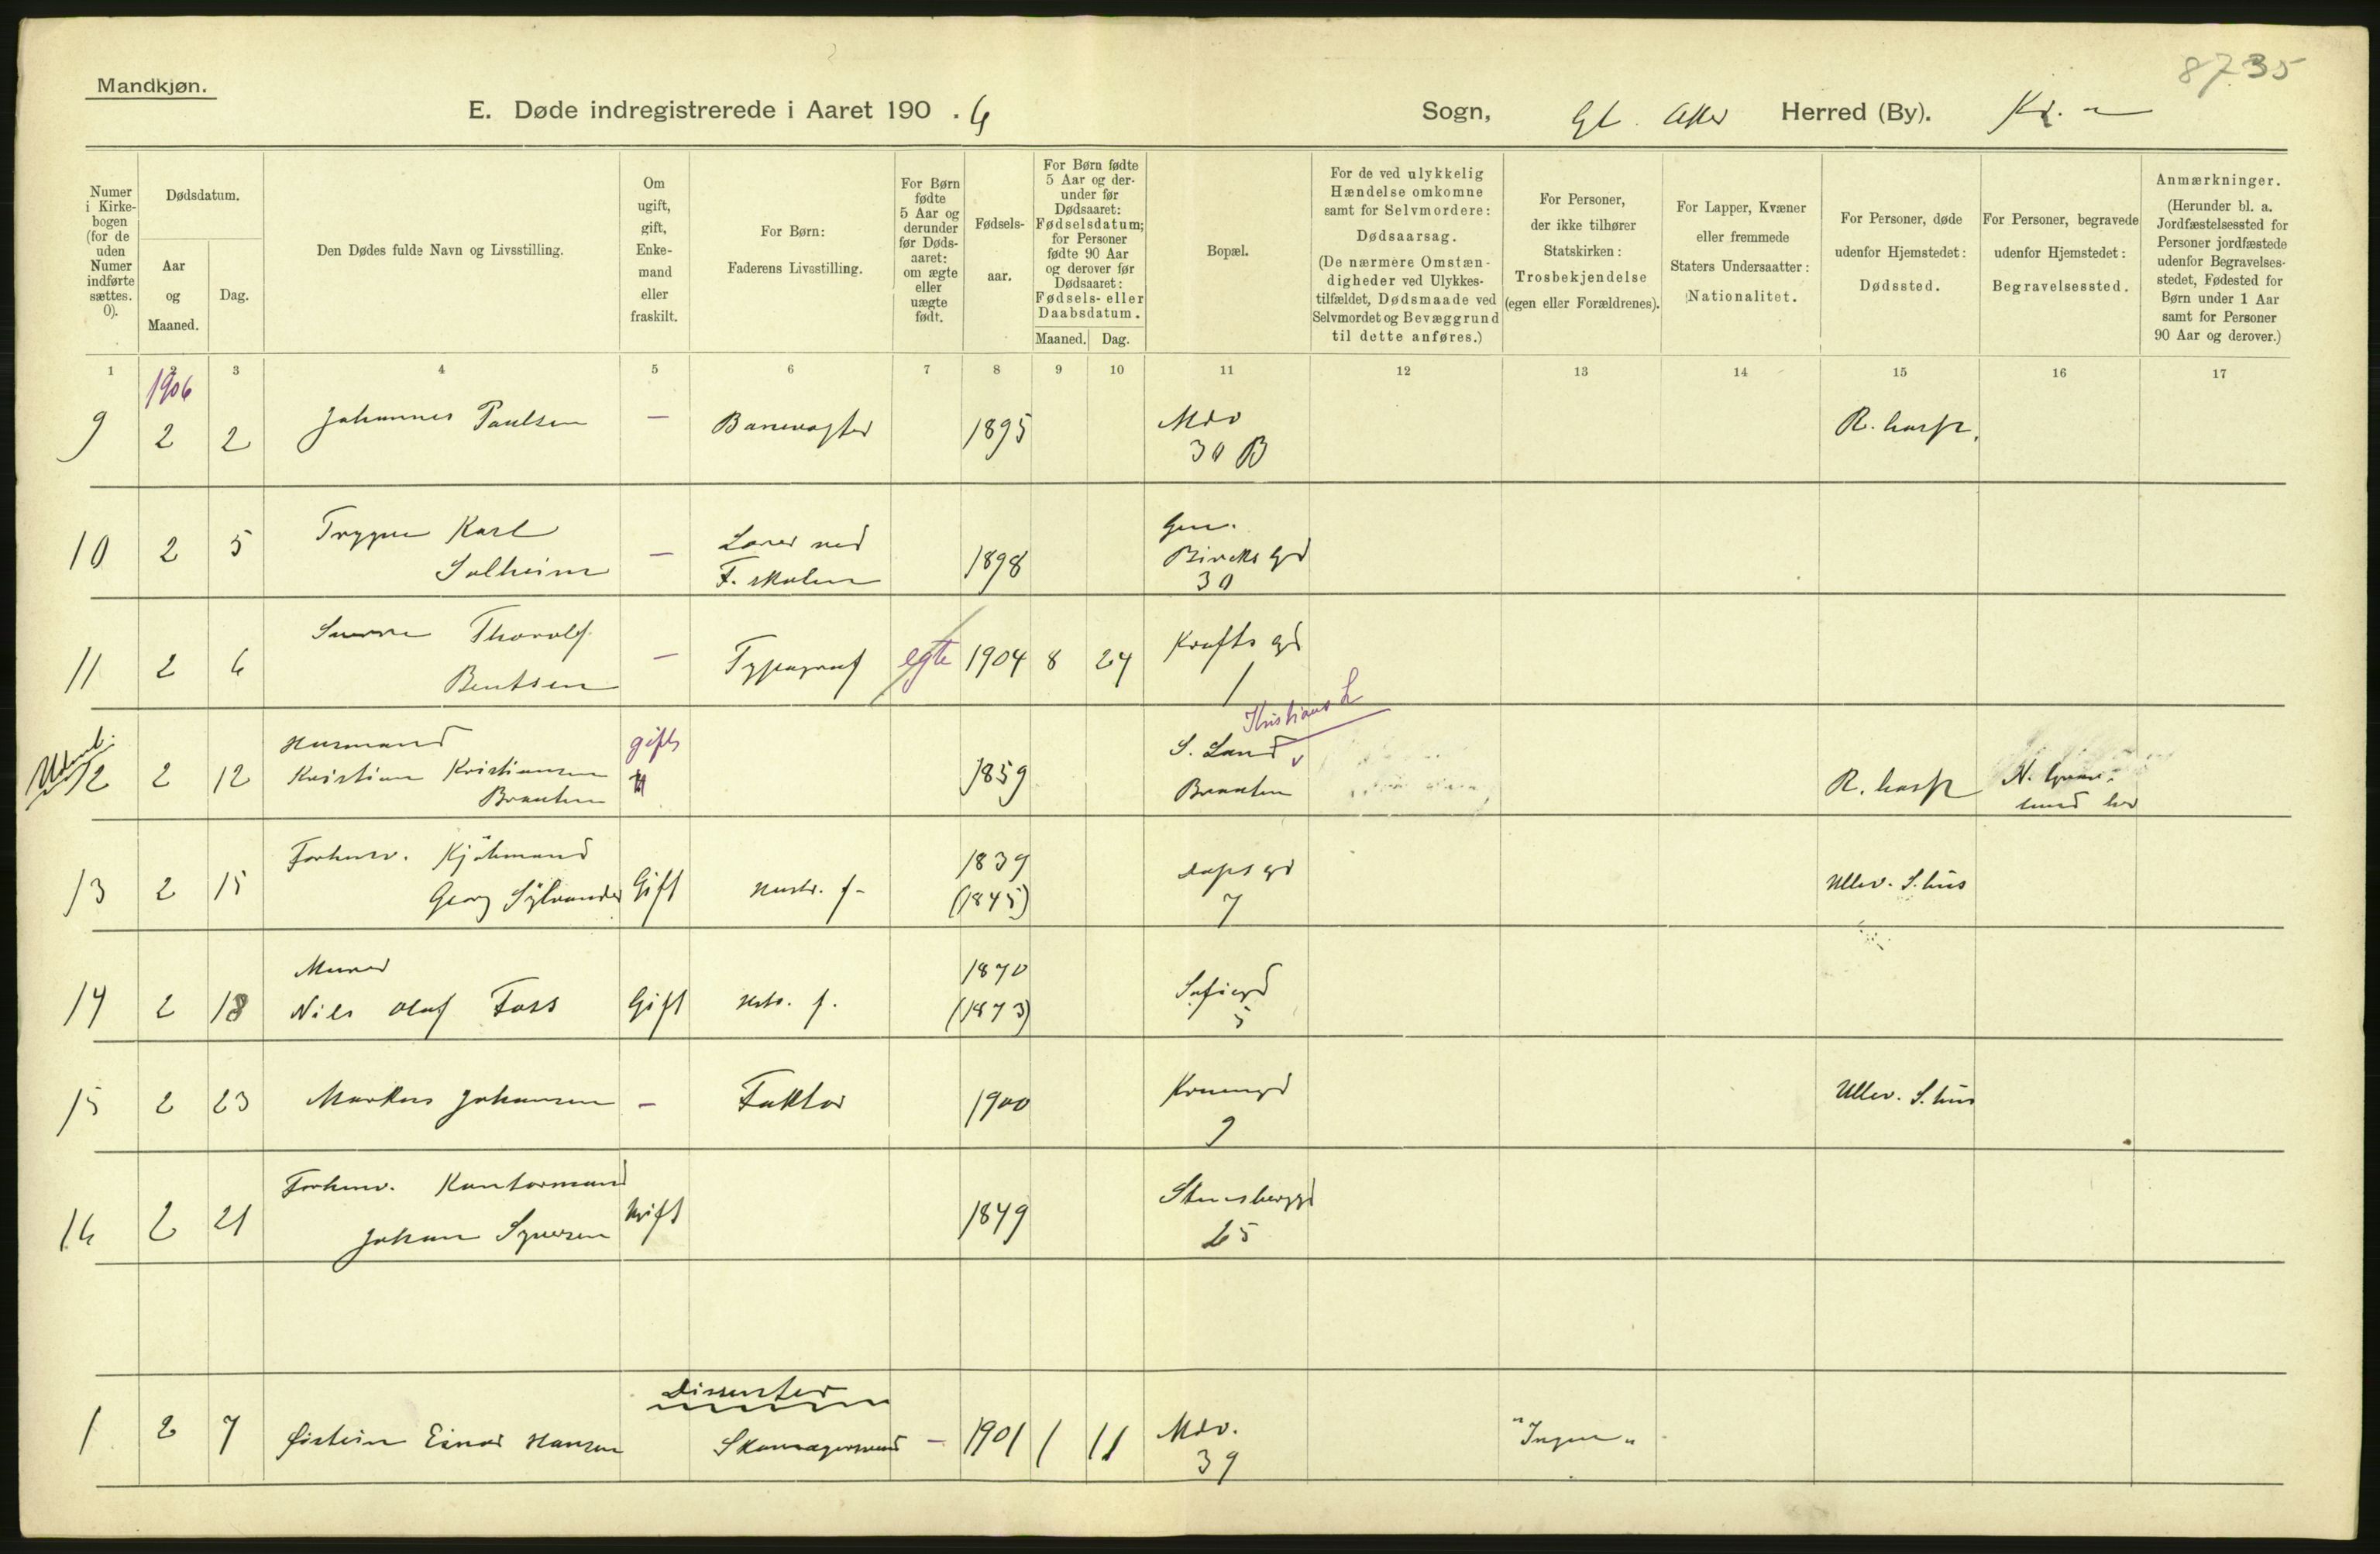 8735
Mandkjøn.
E. Døde indregistrerede i Aaret 190 . 6
Sogn, Gl. Aker Herred (By). Kr.a
Numer i Kirkebogen (for de uden Numer indførte sættes. 0).
Dødsdatum.
Aar og Maaned.
Dag.
Den Dødes fulde Navn og Livsstilling.
Om ugift, gift, Enkemand eller fraskilt.
For Børn: Faderens Livsstilling.
For Børn fødte 5 Aar og derunder før Dødsaaret: om ægte eller uægte født.
Fødselsaar.
For Børn fødte 5 Aar og derunder før Dødsaaret: Fødselsdatum; for Personer fødte 90 Aar og derover før Dødsaaret: Fødsels- eller Daabsdatum.
Maaned. Dag.
Bopæl.
For de ved ulykkelig Hændelse omkomne samt for Selvmordere: Dødsaarsag. (De nærmere Omstændigheder ved Ulykkestilfældet, Dødsmaade ved Selvmordet og Bevæggrund til dette anføres.)
For Personer, der ikke tilhører Statskirken: Trosbekjendelse (egen eller Forældrenes).
For Lapper, Kvæner eller fremmede Staters Undersaatter: Nationalitet.
For Personer, døde udenfor Hjemstedet: Dødssted.
For Personer, begravede udenfor Hjemstedet: Begravelsessted.
Anmærkninger. (Herunder bl. a. Jordfæstelsessted for Personer jordfæstede udenfor Begravelsesstedet, Fødested for Børn under 1 Aar samt for Personer 90 Aar og derover.)
1 2 3 4 5 6 7 8 9 10 11 12 13 14 15 16 17
1906
9 2 2 Johannes Paulsen — Banevogter 1895 Mdv 30 B R. hosp.
10 2 5 Trygve Karl Solheim — Lærer ved F. skolen 1898 Gen. Birchs gd 30
11 2 6 Sverre Thorolf Bentsen — Typograf egte 1904 8 24 Krafts gd 1
12 2 12 Husmand Kristian Kristiansen Braaten gift 1859 S. Land Kristians Braaten R. hosp
13 2 15 Forhenv. Kjøbmand Georg Sylvander Gift Hustr. f. 1839 (1845) Daps gd 7 Ullev. S. hus
14 2 18 Murer Nils Olaf Foss Gift Hstr. f. 1870 (1873) Sofiegd 5
15 2 23 Markus Johansen - Faktor 1900 9 Ullev. S. hus
16 2 21 Forhenv. Kontormand Johan Syversen Gift 1849 Stensberggd 25
Dissenter
1 2 7 Øistein Einar Hansen Skomagersvend — 1901 1 11 Mdv. 39 "Ingen"